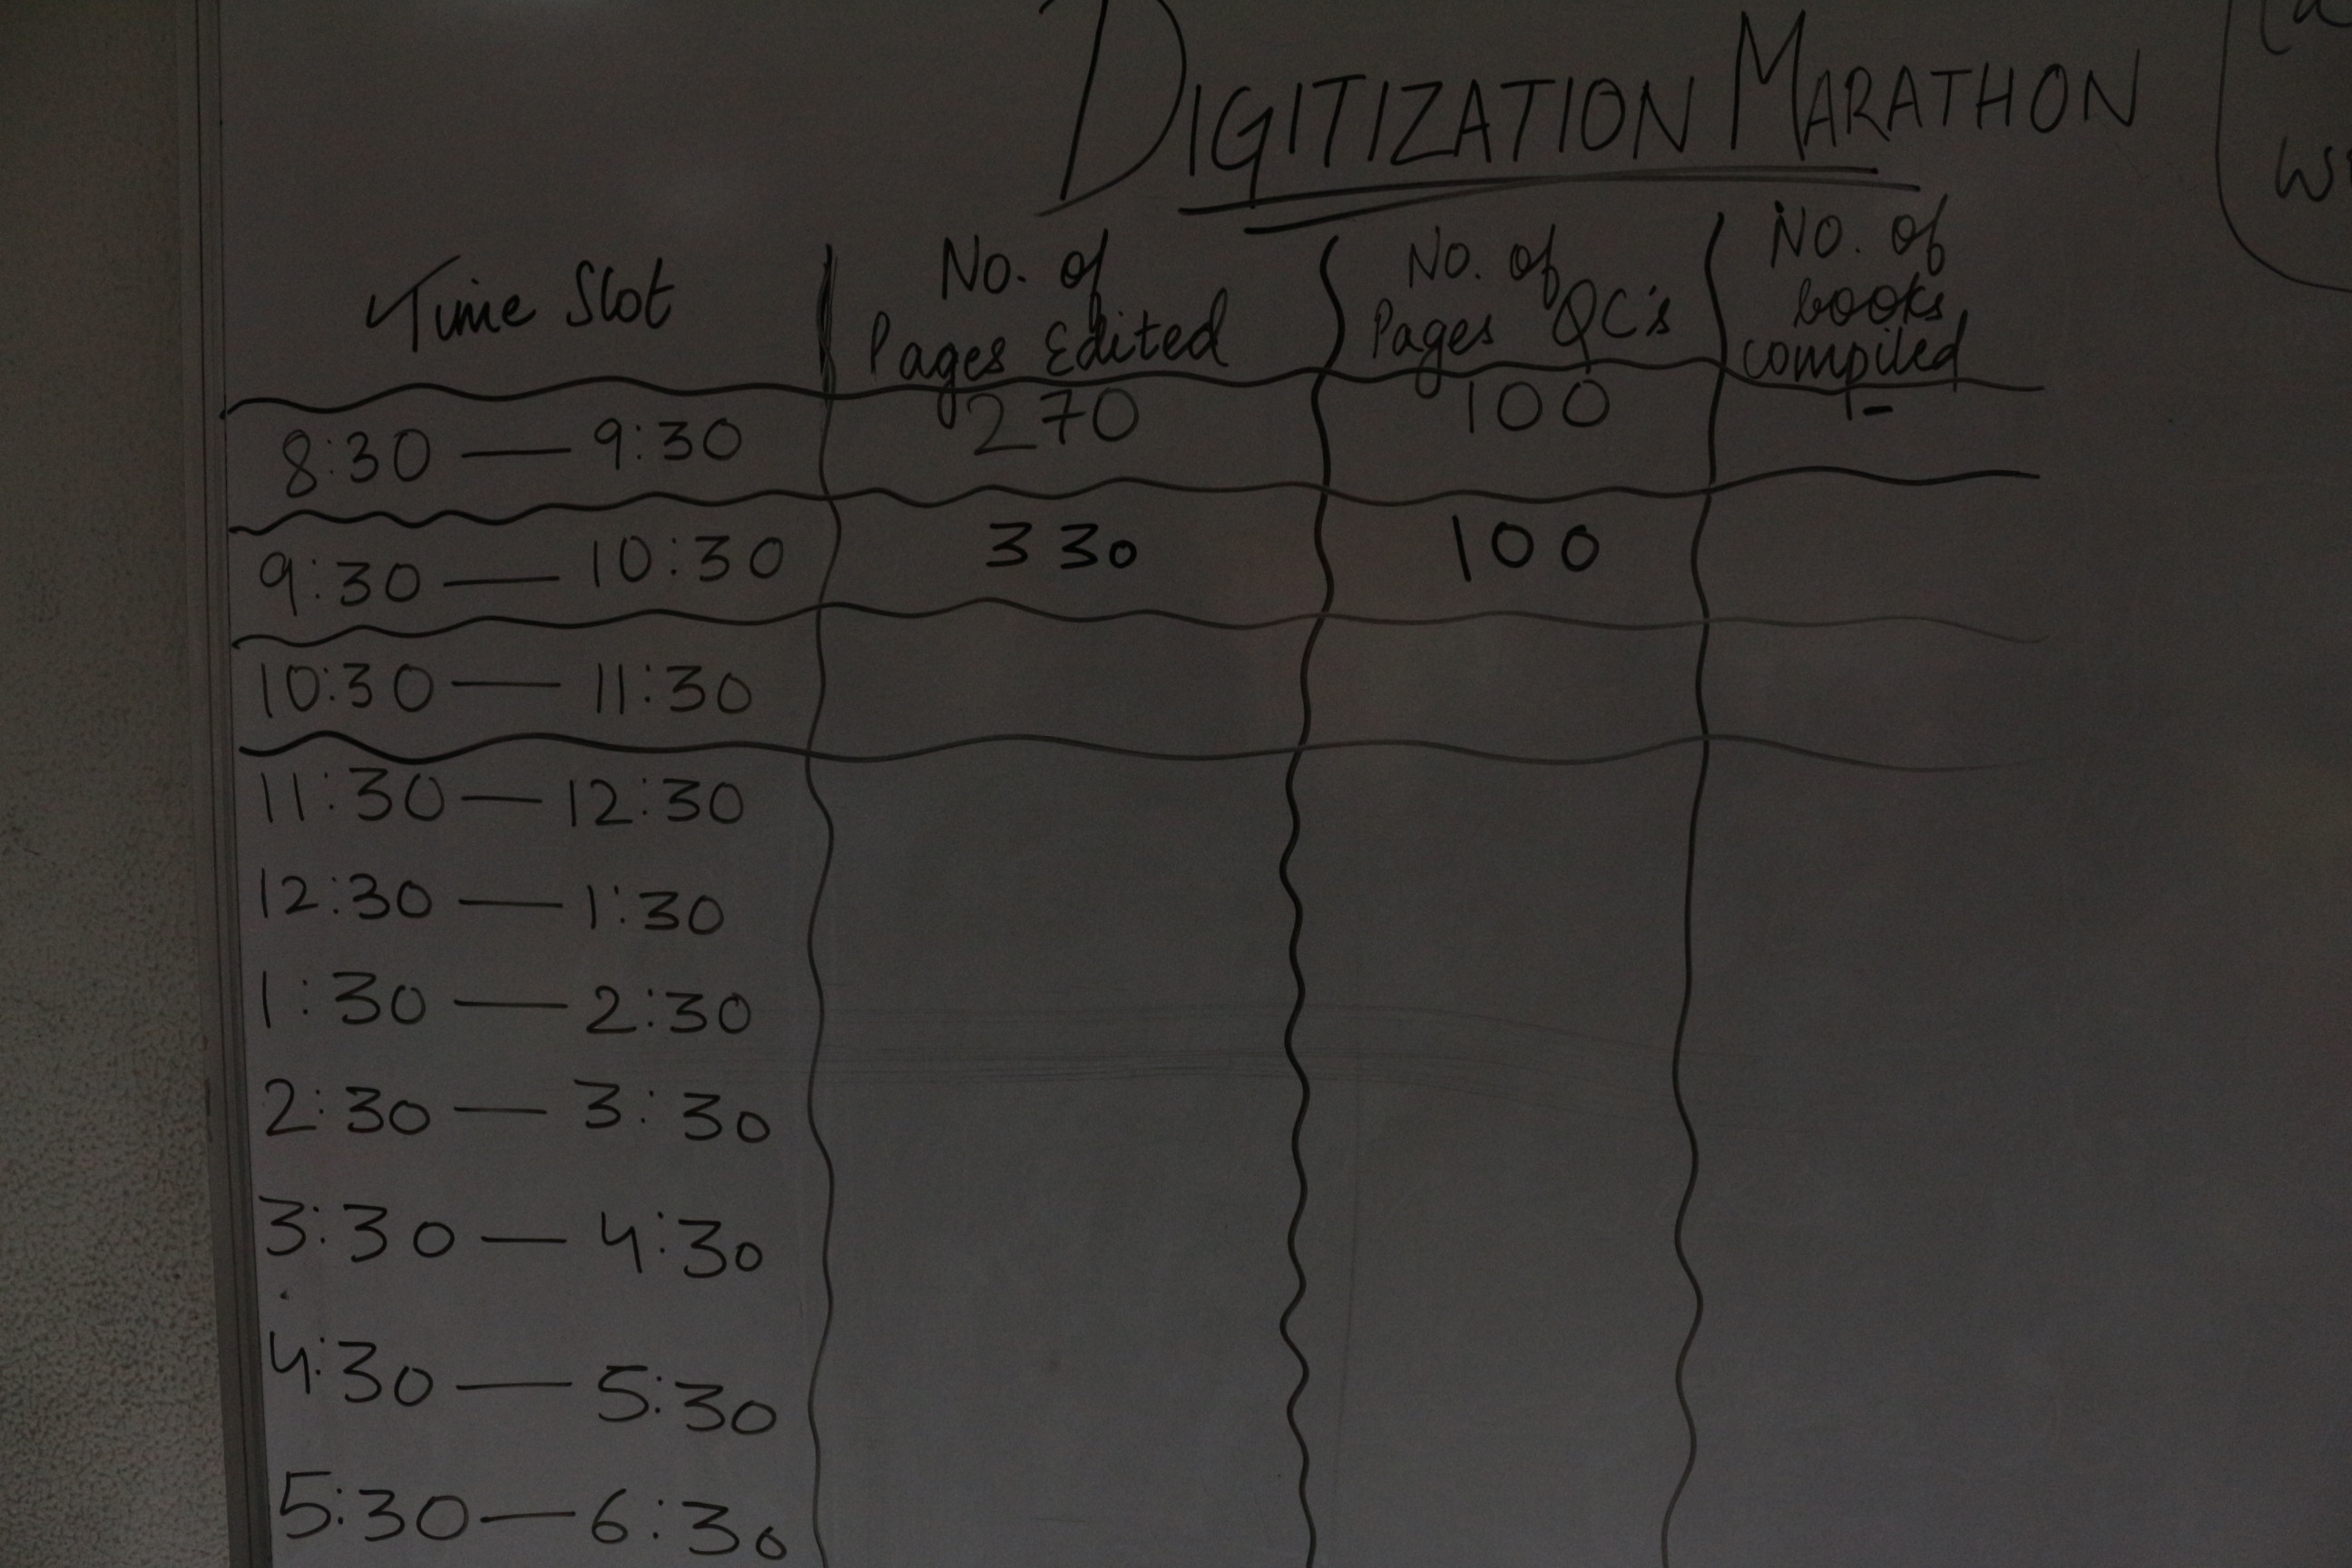 DIGITIZATION MARATHON
Time Slot No. of Pages Edited No. of Pages QC's No. of books compiled
8:30 — 9:30 270 100 -
9:30 — 10:30 330 100
10:30 — 11:30
11:30 — 12:30
12:30 — 1:30
1:30 — 2:30
2:30 — 3:30
3:30 — 4:30
4:30 — 5:30
5:30 — 6:30